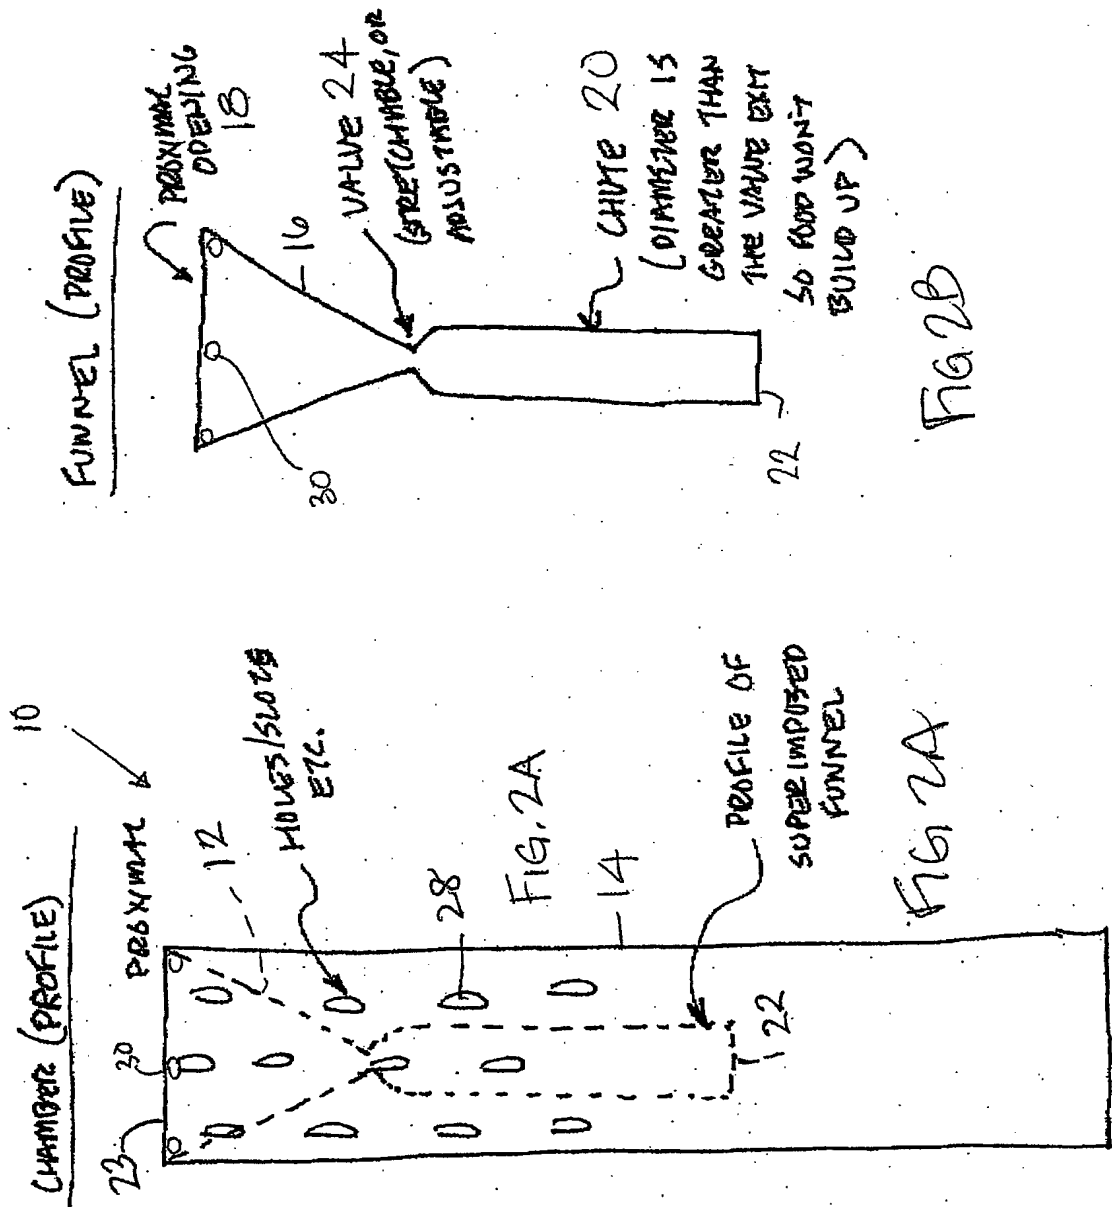 CHAMBER (PROFILE)
10
PROXIMAL
23
30
12
HOLES/SLOTS
ETC.
28
FIG. 2A
14
PROFILE OF
SUPERIMPOSED
FUNNEL
22
FIG 2A
FUNNEL (PROFILE)
PROXIMAL
OPENING
18
16
30
VALVE 24
(STRETCHABLE, OR
ADJUSTABLE)
CHUTE 20
(DIAMETER IS
GREATER THAN
THE VALVE EXIT
SO FOOD WON'T
BUILD UP)
22
FIG 2B